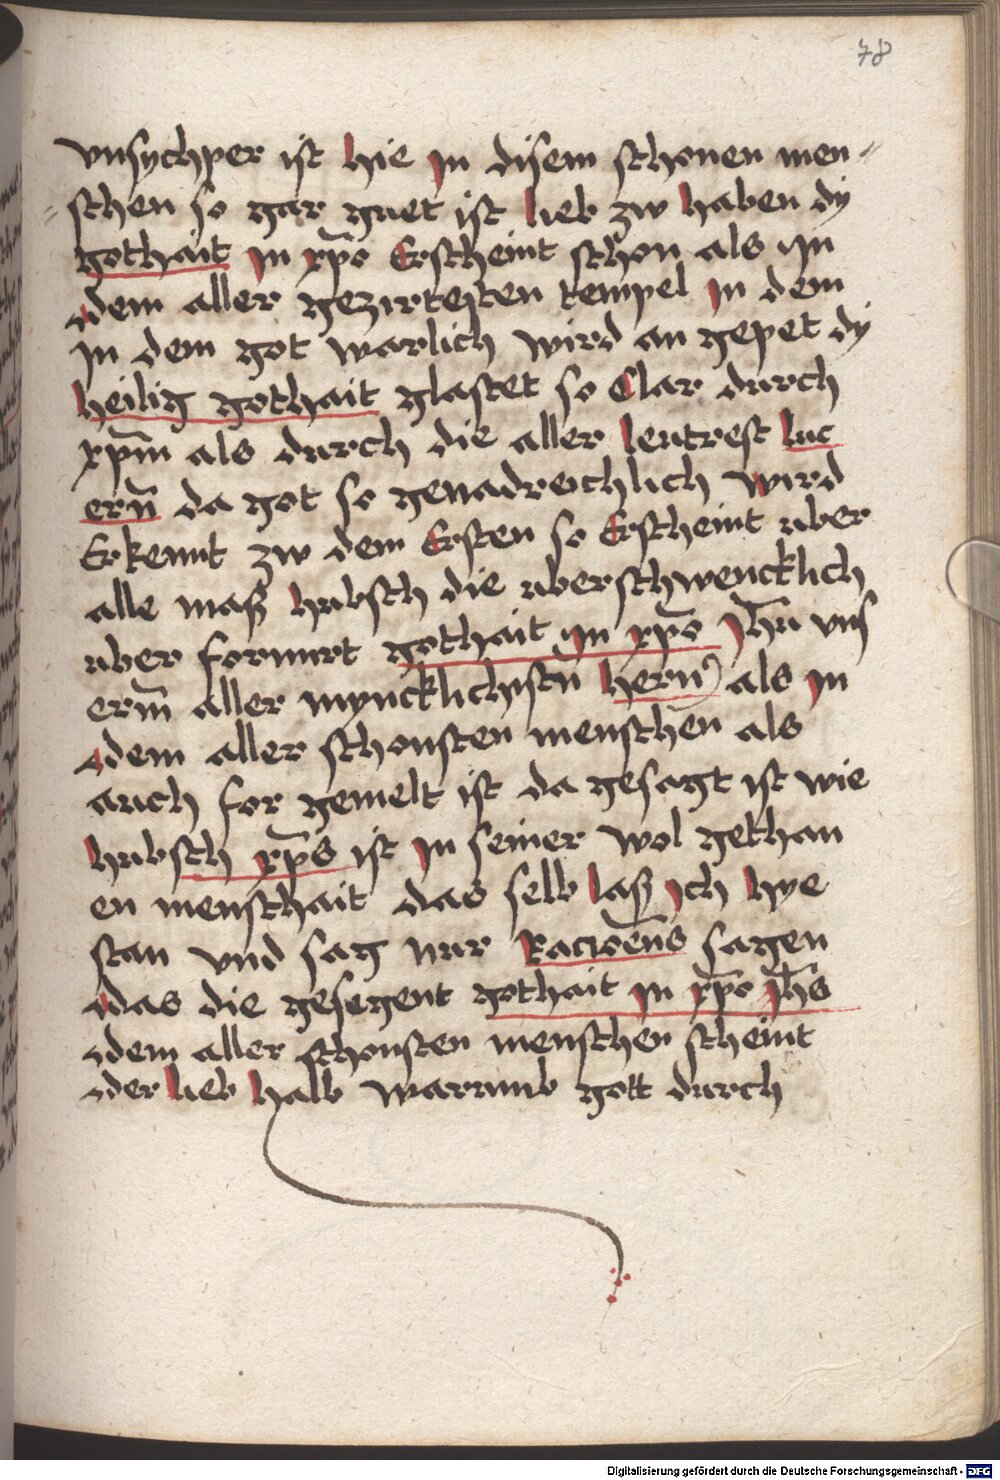 78
vnsychper ist hie in disem schonen men
schen so gar guet ist lieb zw haben dy
gothait in xp̄o Erscheint schon als in
dem aller gezirtesten tempel in dem
in dem got warlich wird an gepet dy
heilig gothait glastet so Clar durch
xp̄m als durch die aller leutrest luc
ern̄ da got so genadreichlich wird
Erkennt zw dem Ersten so Erscheint vber
alle maß hubsch die vberschwencklich
vber formirt gothait in xp̄o Jhū vns
erm̄ aller myncklichistn̄ hern̄ als in
dem aller schonsten menschen als
auch for gemelt ist da gesagt ist wie
hubsch xp̄s ist in seiner wol gethan
en menschait das selb laß ich hye
stan vnd sag nur sagen
das die gesegent gothait in xp̄o Jh̄s
dem aller schonsten menschen scheint
der lieb halb warumb gott durch
Digitalisierung gefördert durch die Deutsche Forschungsgemeinschaft - DFG